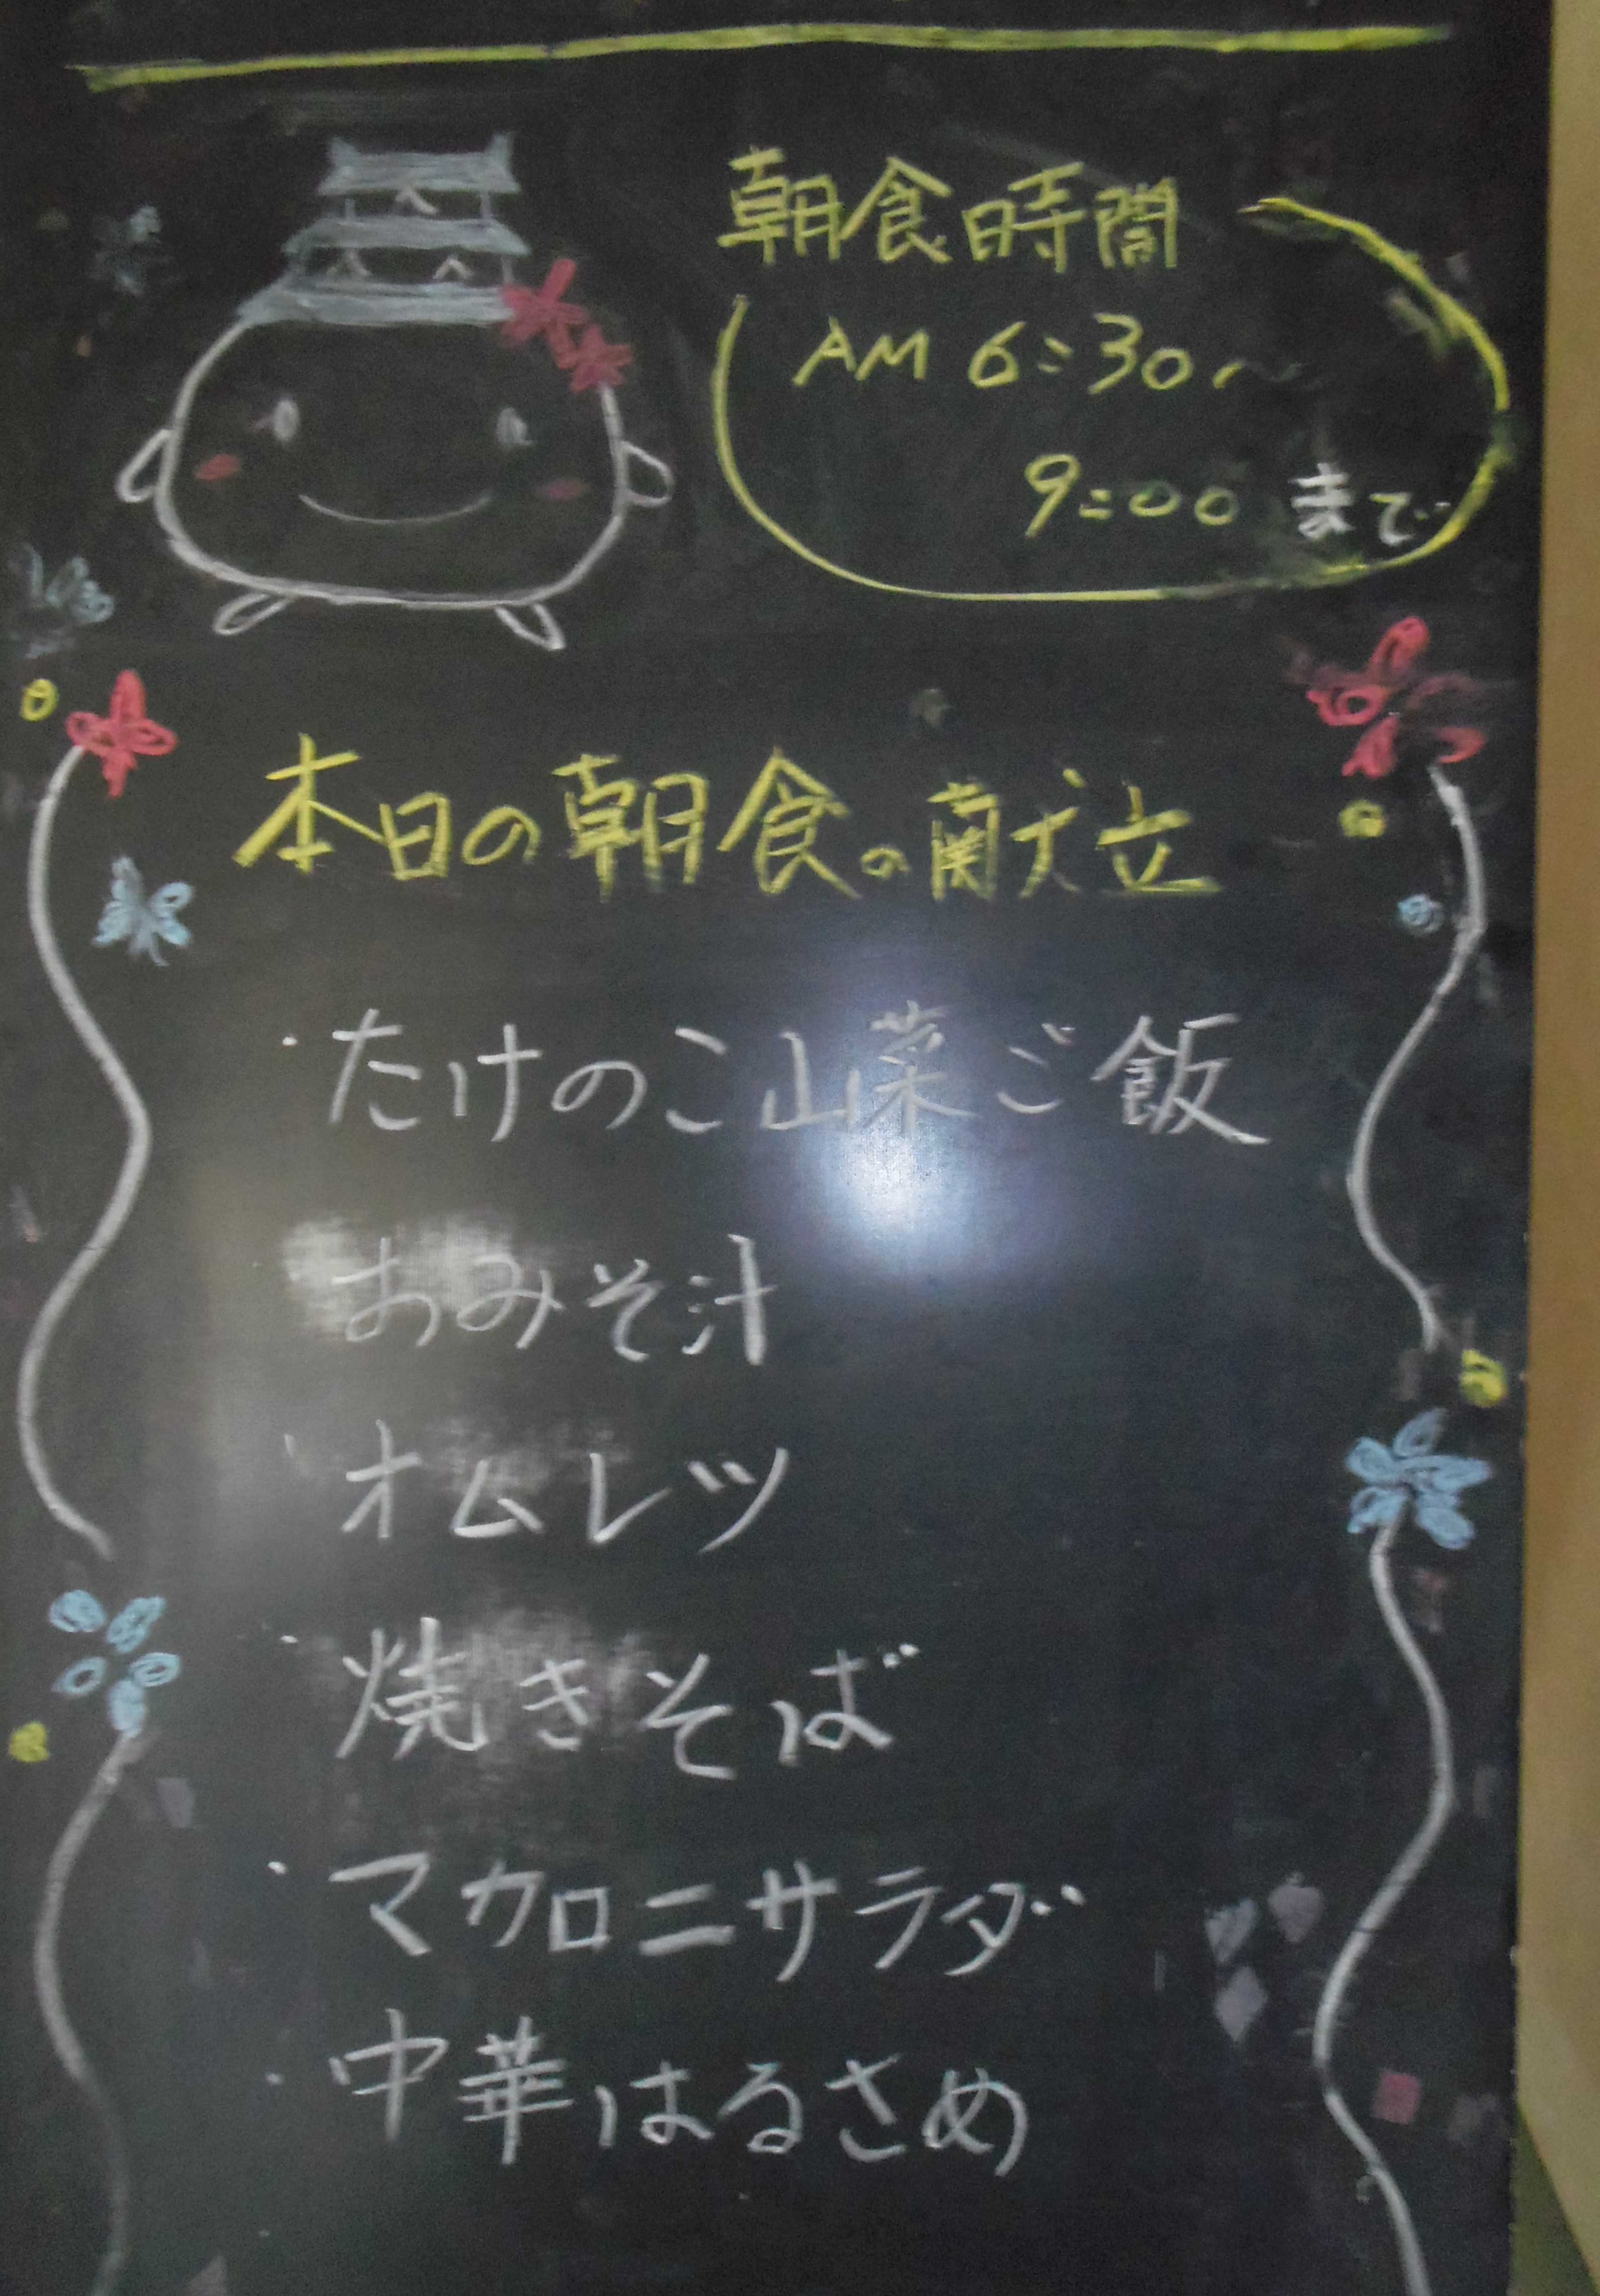 朝食時間
AM 6:30～
9:00 まで
本日の朝食の献立
・たけのこ山菜ご飯
・おみそ汁
・オムレツ
・焼きそば
・マカロニサラダ
・中華はるさめ